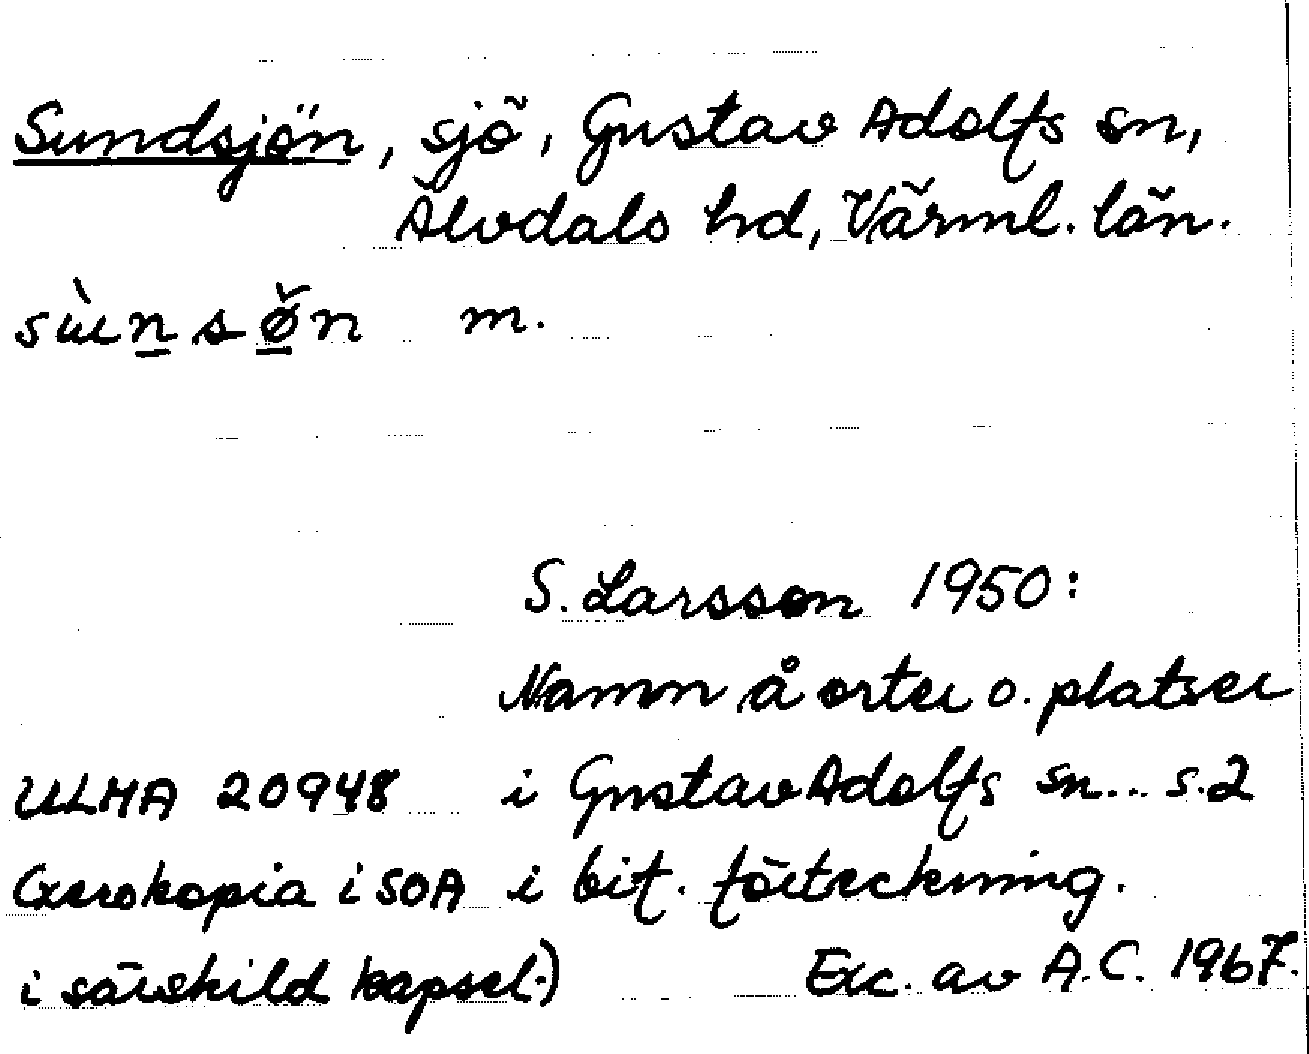 Sundsjön, sjö, Gustav Adolfs sn,
Älvdals hd, Värml. län.
sùns ø̌n m.
S. Larsson 1950:
Namn å orter o. platser
ULMA 20948 i Gustav Adolfs sn... s.2
(Xerokopia i SOA i bif. förteckning.
i särskild kapsel.) Exc. av A.C. 1967.